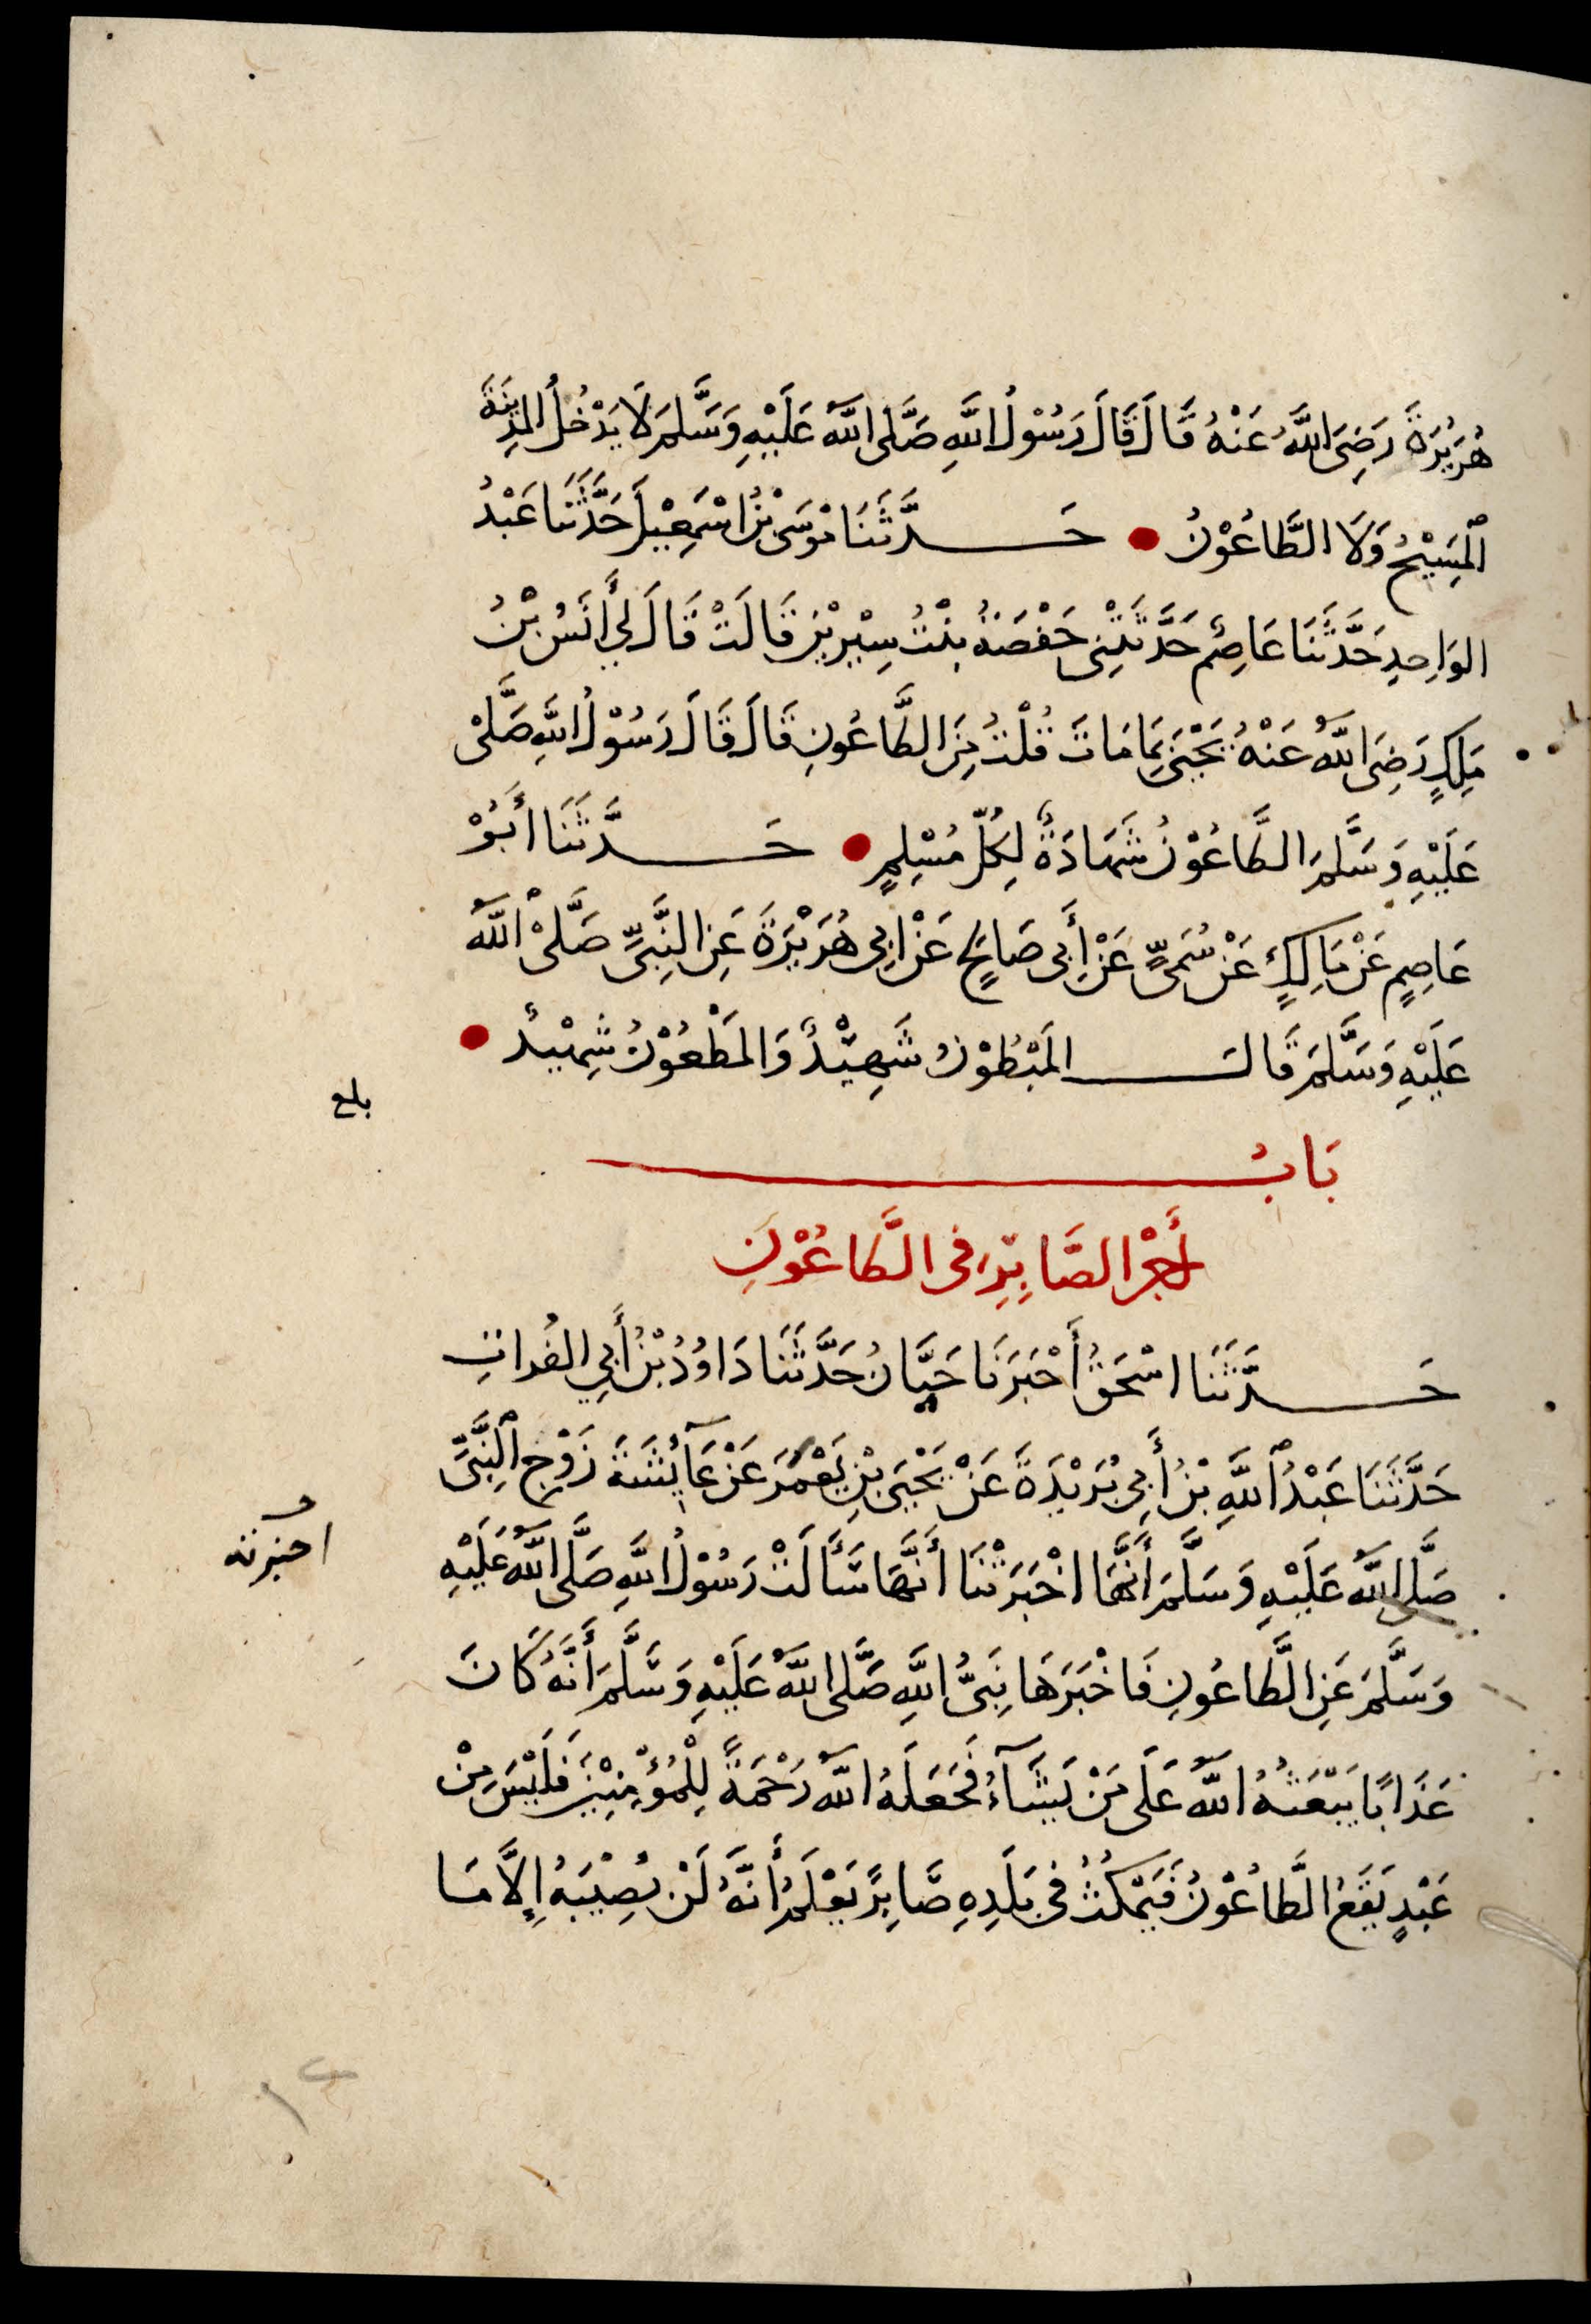 هُرَيْرَةَ رَضِيَ اللَّهُ عَنْهُ قَالَ قَالَ رَسُوْلُ اللَّهِ صَلَّى اللَّهُ عَلَيْهِ وَسَلَّمَ لَا يَدْخُلُ الْمَدِيْنَةَ
الْمَسِيْحُ وَلَا الطَّاعُوْنُ حَدَّثَنَا مُوْسَى بْنُ اسْمَعِيْلَ حَدَّثَنَا عَبْدُ
الوَاحِدِ حَدَّثَنَا عَاصِمٌ حَدَّثَتْنِى حَفْصَةُ بِنْتُ سِيْرِيْنَ قَالَتْ قَالَ لِي أَنَسُ بْنُ
مَلِكٍ رَضِيَ اللَّهُ عَنْهُ يَحْيَى بِمَا مَاتَ قُلْتُ مِنَ الطَّاعُونِ قَالَ قَالَ رَسُوْلُ اللَّهِ صَلَّىْ
عَلَيْهِ وَسَلَّمَ الطَّاعُوْنُ شَهَادَةٌ لِكُلِّ مُسْلِمٍ حَدَّثَنَا أَبُوْ
عَاصِمٍ عَنْ مَالِكٍ عَنْ سُمَىٍّ عَنْ أَبِى صَالِحٍ عَنْ ابِى هُرَيْرَةَ عَنِ النَّبِىِّ صَلَّىْ اللَّهُ
عَلَيْهِ وَسَلَّمَ قَالَ الْمَبْطُوْنُ شَهِيْدٌ وَالْمَطْعُوْنُ شَهِيْدٌ
بلغ
بَابُ
أَجْرِ الصَّابِرِ فِى الطَّاعُوْنِ
حَدَّثَنَا اسْحَقُ أَخْبَرَنَا حَبَّانُ حَدَّثَنَا دَاوُدُ بْنُ أَبِي الفُراتِ
حَدَّثَنَا عَبْدُ اللَّهِ بْنُ أَبِى بُرَيْدَةَ عَنْ يَحْيَى بْنِ يَعْمَرَ عَنْ عَآئِشَةَ زَوْجِ النَّبِىِّ
صَلَّى اللَّهُ عَلَيْهِ وَسَلَّمَ أَنَّهَا اخْبَرَتْنَا أَنَّهَا سَأَلَتْ رَسُوْلَ اللَّهِ صَلَّى اللَّهُ عَلَيْهِ
اخبرته
وَسَلَّمَ عَنِ الطَّاعُونِ فَاخْبَرَهَا نَبِىُّ اللَّهِ صَلَّى اللَّهُ عَلَيْهِ وَسَلَّمَ أَنَّهُ كَانَ
عَذَابًا يَبْعَثُهُ اللَّهُ عَلَى مَنْ يَشَآءُ فَجَعَلَهُ اللَّهُ رَحْمَةً لِلْمُؤْمِنِيْنَ فَلَيْسَ مِنْ
عَبْدٍ يَقَعُ الطَّاعُوْنُ فَيَمْكُثُ فِى بَلَدِهِ صَابِرًا يَعْلَمُ أَنَّهُ لَنْ يُصِيْبَهُ إِلَّا مَا